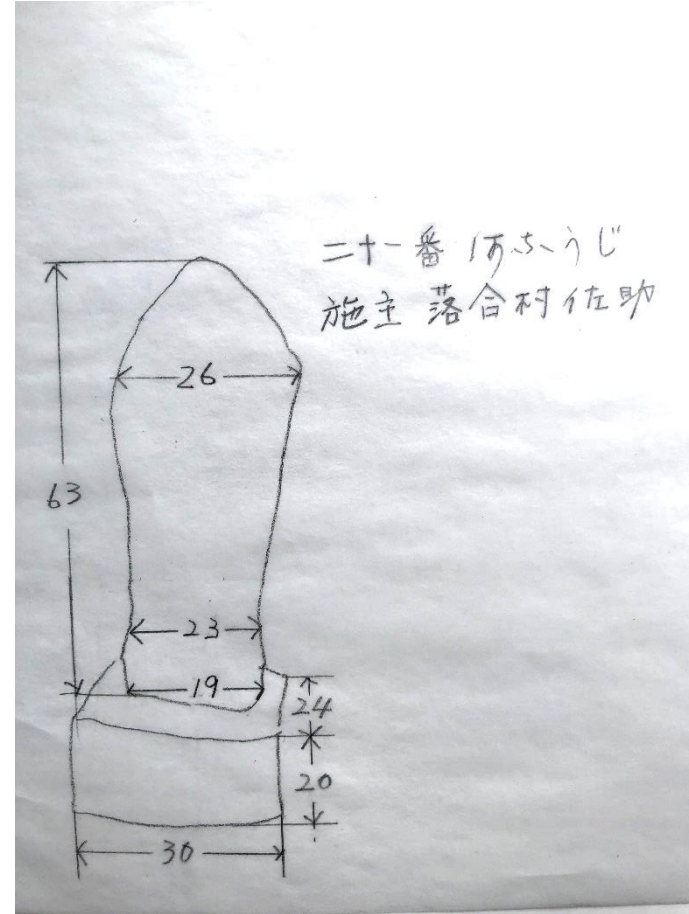 二十一番 はふうじ
施主 落合村佐助
26
63
23
19
24
20
30